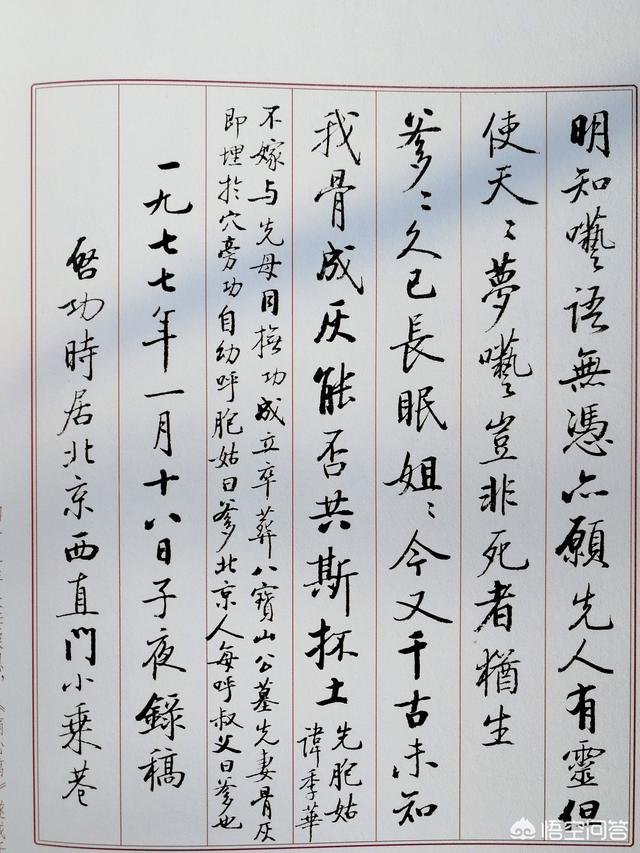 明知囈語無憑亦願先人有靈但
使天〻夢囈豈非死者猶生
爹〻久已長眠姐〻今又千古未知
我骨成灰能否共斯抔土
先胞姑
諱季華
不嫁与先母同撫功成立卒葬八寶山公墓先妻骨灰
即埋於穴旁功自幼呼胞姑曰爹北京人每呼叔父曰爹也
一九七七年一月十八日子夜錄稿
啓功時居北京西直門小乘巷
悟空问答